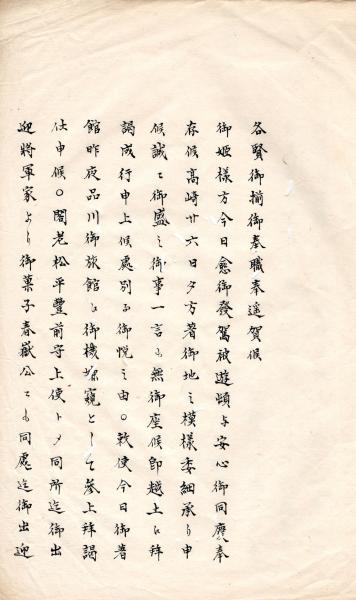 各賢御揃御奉職奉遥賀候
御姫様方今日愈御發駕被遊頓与安心御同慶奉
存候高崎廿六日夕方著御地之模様委細承り申
候誠ニ御盛之御事一言も無御座候即越土に拜
謁成行申上候處別而御悦之由○敕使今日御著
館昨夜品川御旅館に御機嫌窺として參上拜謁
仕申候○閣老松平豐前守上使トメ同所迄御出
迎將軍家より御菓子春嶽公ニも同處迄御出迎